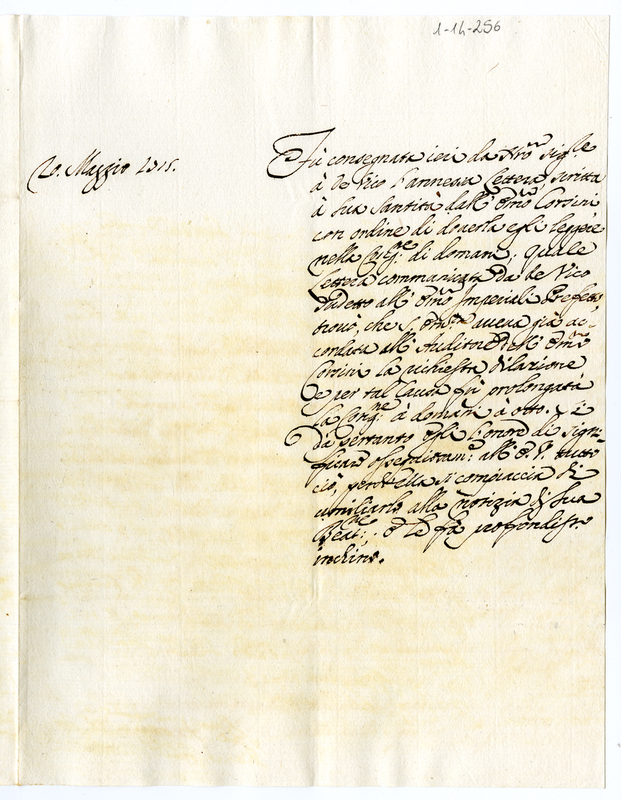 1-14-256
20. Maggio
Fù consegnata ieri da
à de Vico l'annessa lettera scritta
à Sua Santità dall' Emo Corsini
con ordine di doverla egli leggere
nella di domani; quale
lettera communicata da de Vico
sudetto all' Emo Imperiali Prefetto,
trovò, che aveva già ac-
cordata all' Auditore dell' Emo
Corsini la richiesta dilazione
e per tal causa fù prolongata
la Congne à domani à otto. Si
dà pertanto l'onore di signi-
ficare ossequiosamte all' E. V. tutto
ciò, perch'ella si compiaccia di
umiliarlo alla notizia di Sua
Beatne; e le fà profondismo
inchino.